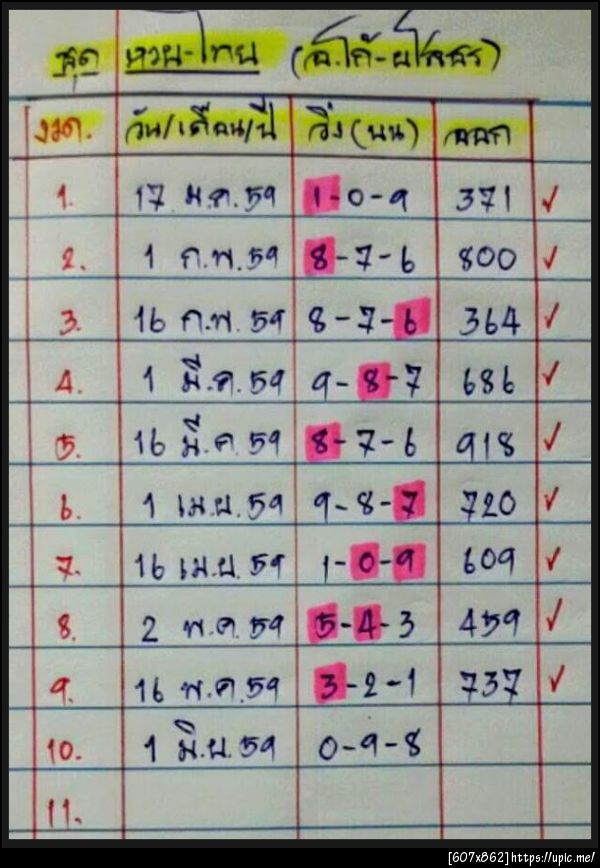 ชุด หวย-ไทย (อ.ไก่-ยโสธร)
งวด. วัน/เดือน/ปี วิ่ง(บน) ออก
1. 17 ม.ค. 59 1-0-9 371 ✓
2. 1 ก.พ. 59 8-7-6 800 ✓
3. 16 ก.พ. 59 8-7-6 364 ✓
4. 1 มี.ค. 59 9-8-7 686 ✓
5. 16 มี.ค. 59 8-7-6 918 ✓
6. 1 เม.ย. 59 9-8-7 720 ✓
7. 16 เม.ย. 59 1-0-9 609 ✓
8. 2 พ.ค. 59 5-4-3 459 ✓
9. 16 พ.ค. 59 3-2-1 737 ✓
10. 1 มิ.ย. 59 0-9-8
11.
[607x862]https://upic.me/